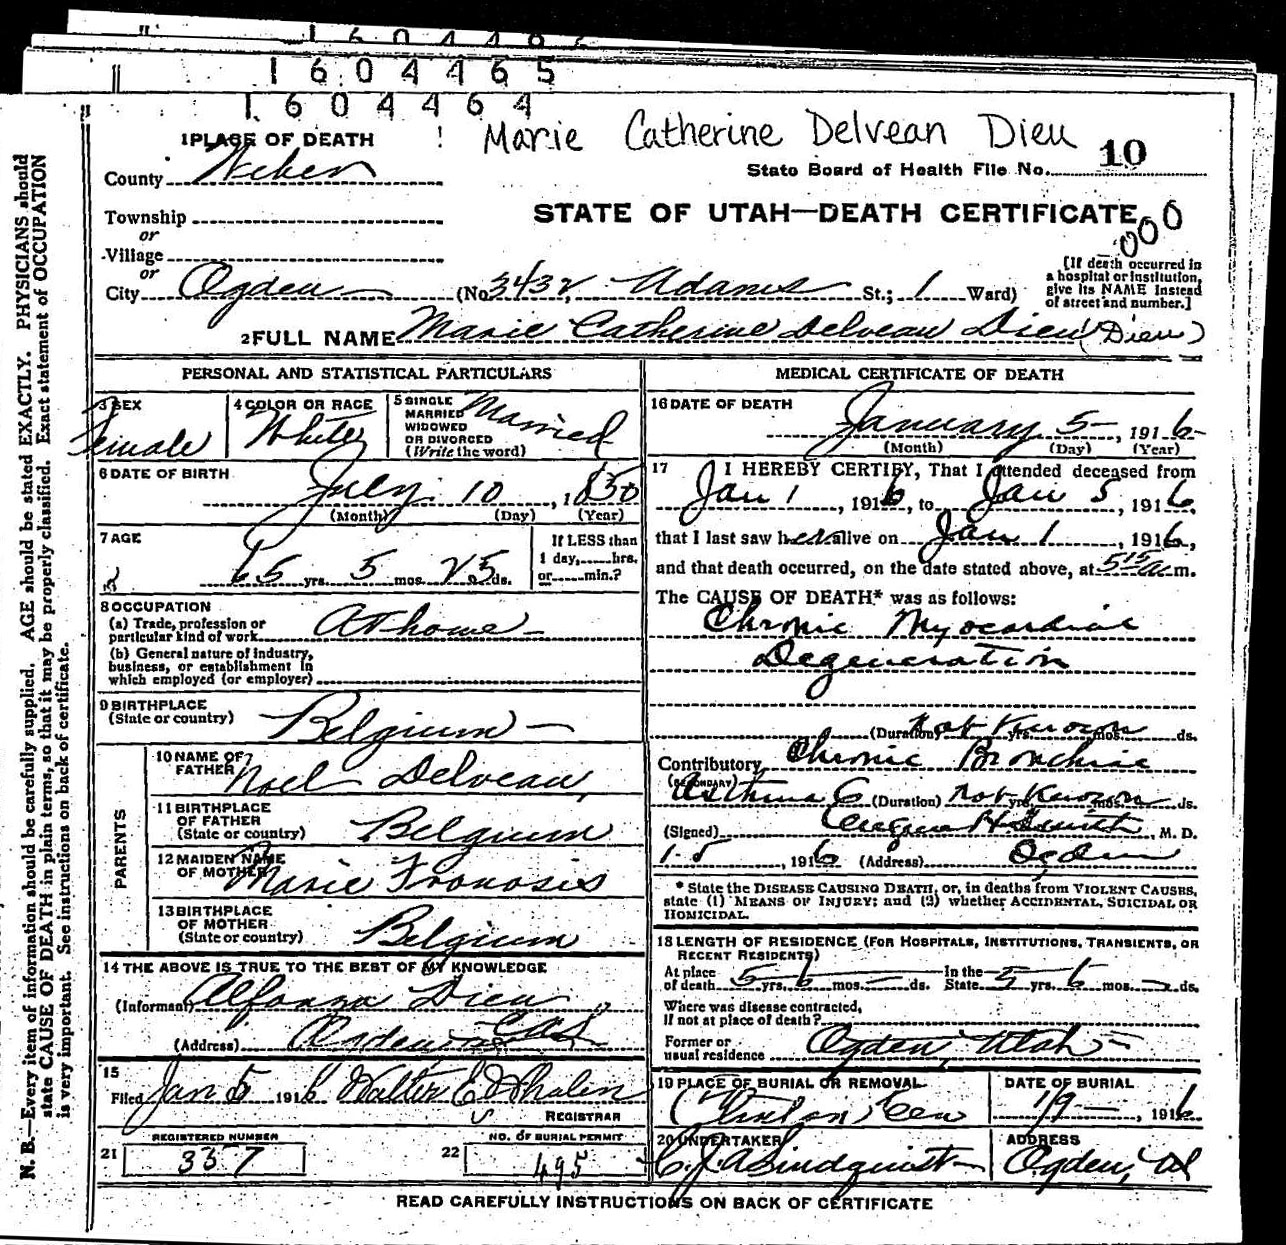 1604465
1604464
Marie Catherine Delvean Dieu
1 PLACE OF DEATH
State Board of Health File No. 10
County Weber
STATE OF UTAH—DEATH CERTIFICATE
000
Township
or
Village
or
City Ogden (No. 3432 Adams St.; 1 Ward)
[If death occurred in
a hospital or institution,
give its NAME instead
of street and number.]
2 FULL NAME Marie Catherine Delveau Dieu (Dieu)
PERSONAL AND STATISTICAL PARTICULARS
3 SEX
Female
4 COLOR OR RACE
White
5 SINGLE
MARRIED
WIDOWED
OR DIVORCED
(Write the word)
Married
6 DATE OF BIRTH
July 10, 1850
(Month) (Day) (Year)
7 AGE
65 yrs. 5 mos. 25 ds.
If LESS than
1 day, hrs.
or min.?
8 OCCUPATION
(a) Trade, profession or
particular kind of work At home
(b) General nature of industry,
business, or establishment in
which employed (or employer)
9 BIRTHPLACE
(State or country) Belgium
PARENTS
10 NAME OF
FATHER Noel Delveau
11 BIRTHPLACE
OF FATHER
(State or country) Belgium
12 MAIDEN NAME
OF MOTHER Marie
13 BIRTHPLACE
OF MOTHER
(State or country) Belgium
14 THE ABOVE IS TRUE TO THE BEST OF MY KNOWLEDGE
(Informant) Alfonza Dieu
(Address) Ogden
15
Filed Jan 5 1916 Walter E Whalen
REGISTRAR
REGISTERED NUMBER
21 357
NO. OF BURIAL PERMIT
22 495
MEDICAL CERTIFICATE OF DEATH
16 DATE OF DEATH
January 5, 1916
(Month) (Day) (Year)
17 I HEREBY CERTIFY, That I attended deceased from
Jan 1, 1916, to Jan 5, 1916,
that I last saw her alive on Jan 1, 1916,
and that death occurred, on the date stated above, at 5 15 a.m.
The CAUSE OF DEATH* was as follows:
Chronic Myocardial
Degeneration
(Duration) not known yrs. mos. ds.
Contributory Chronic Bronchial
(SECONDARY)
Asthma (Duration) not known yrs. mos. ds.
(Signed) Eugene H Smith, M. D.
1-5, 1916 (Address) Ogden
* State the DISEASE CAUSING DEATH, or, in deaths from VIOLENT CAUSES,
state (1) MEANS OF INJURY; and (2) whether ACCIDENTAL, SUICIDAL OR
HOMICIDAL.
18 LENGTH OF RESIDENCE (FOR HOSPITALS, INSTITUTIONS, TRANSIENTS, OR
RECENT RESIDENTS)
At place
of death 5 yrs. 6 mos. ds. In the
State 5 yrs. 6 mos. ds.
Where was disease contracted,
if not at place of death?
Former or
usual residence Ogden, Utah
19 PLACE OF BURIAL OR REMOVAL
Cem
DATE OF BURIAL
1/9, 1916
20 UNDERTAKER
C. J. A Lindquist
ADDRESS
Ogden, Ut
READ CAREFULLY INSTRUCTIONS ON BACK OF CERTIFICATE
N. B.—Every item of information should be carefully supplied. AGE should be stated EXACTLY. PHYSICIANS should
state CAUSE OF DEATH in plain terms, so that it may be properly classified. Exact statement of OCCUPATION
is very important. See instructions on back of certificate.